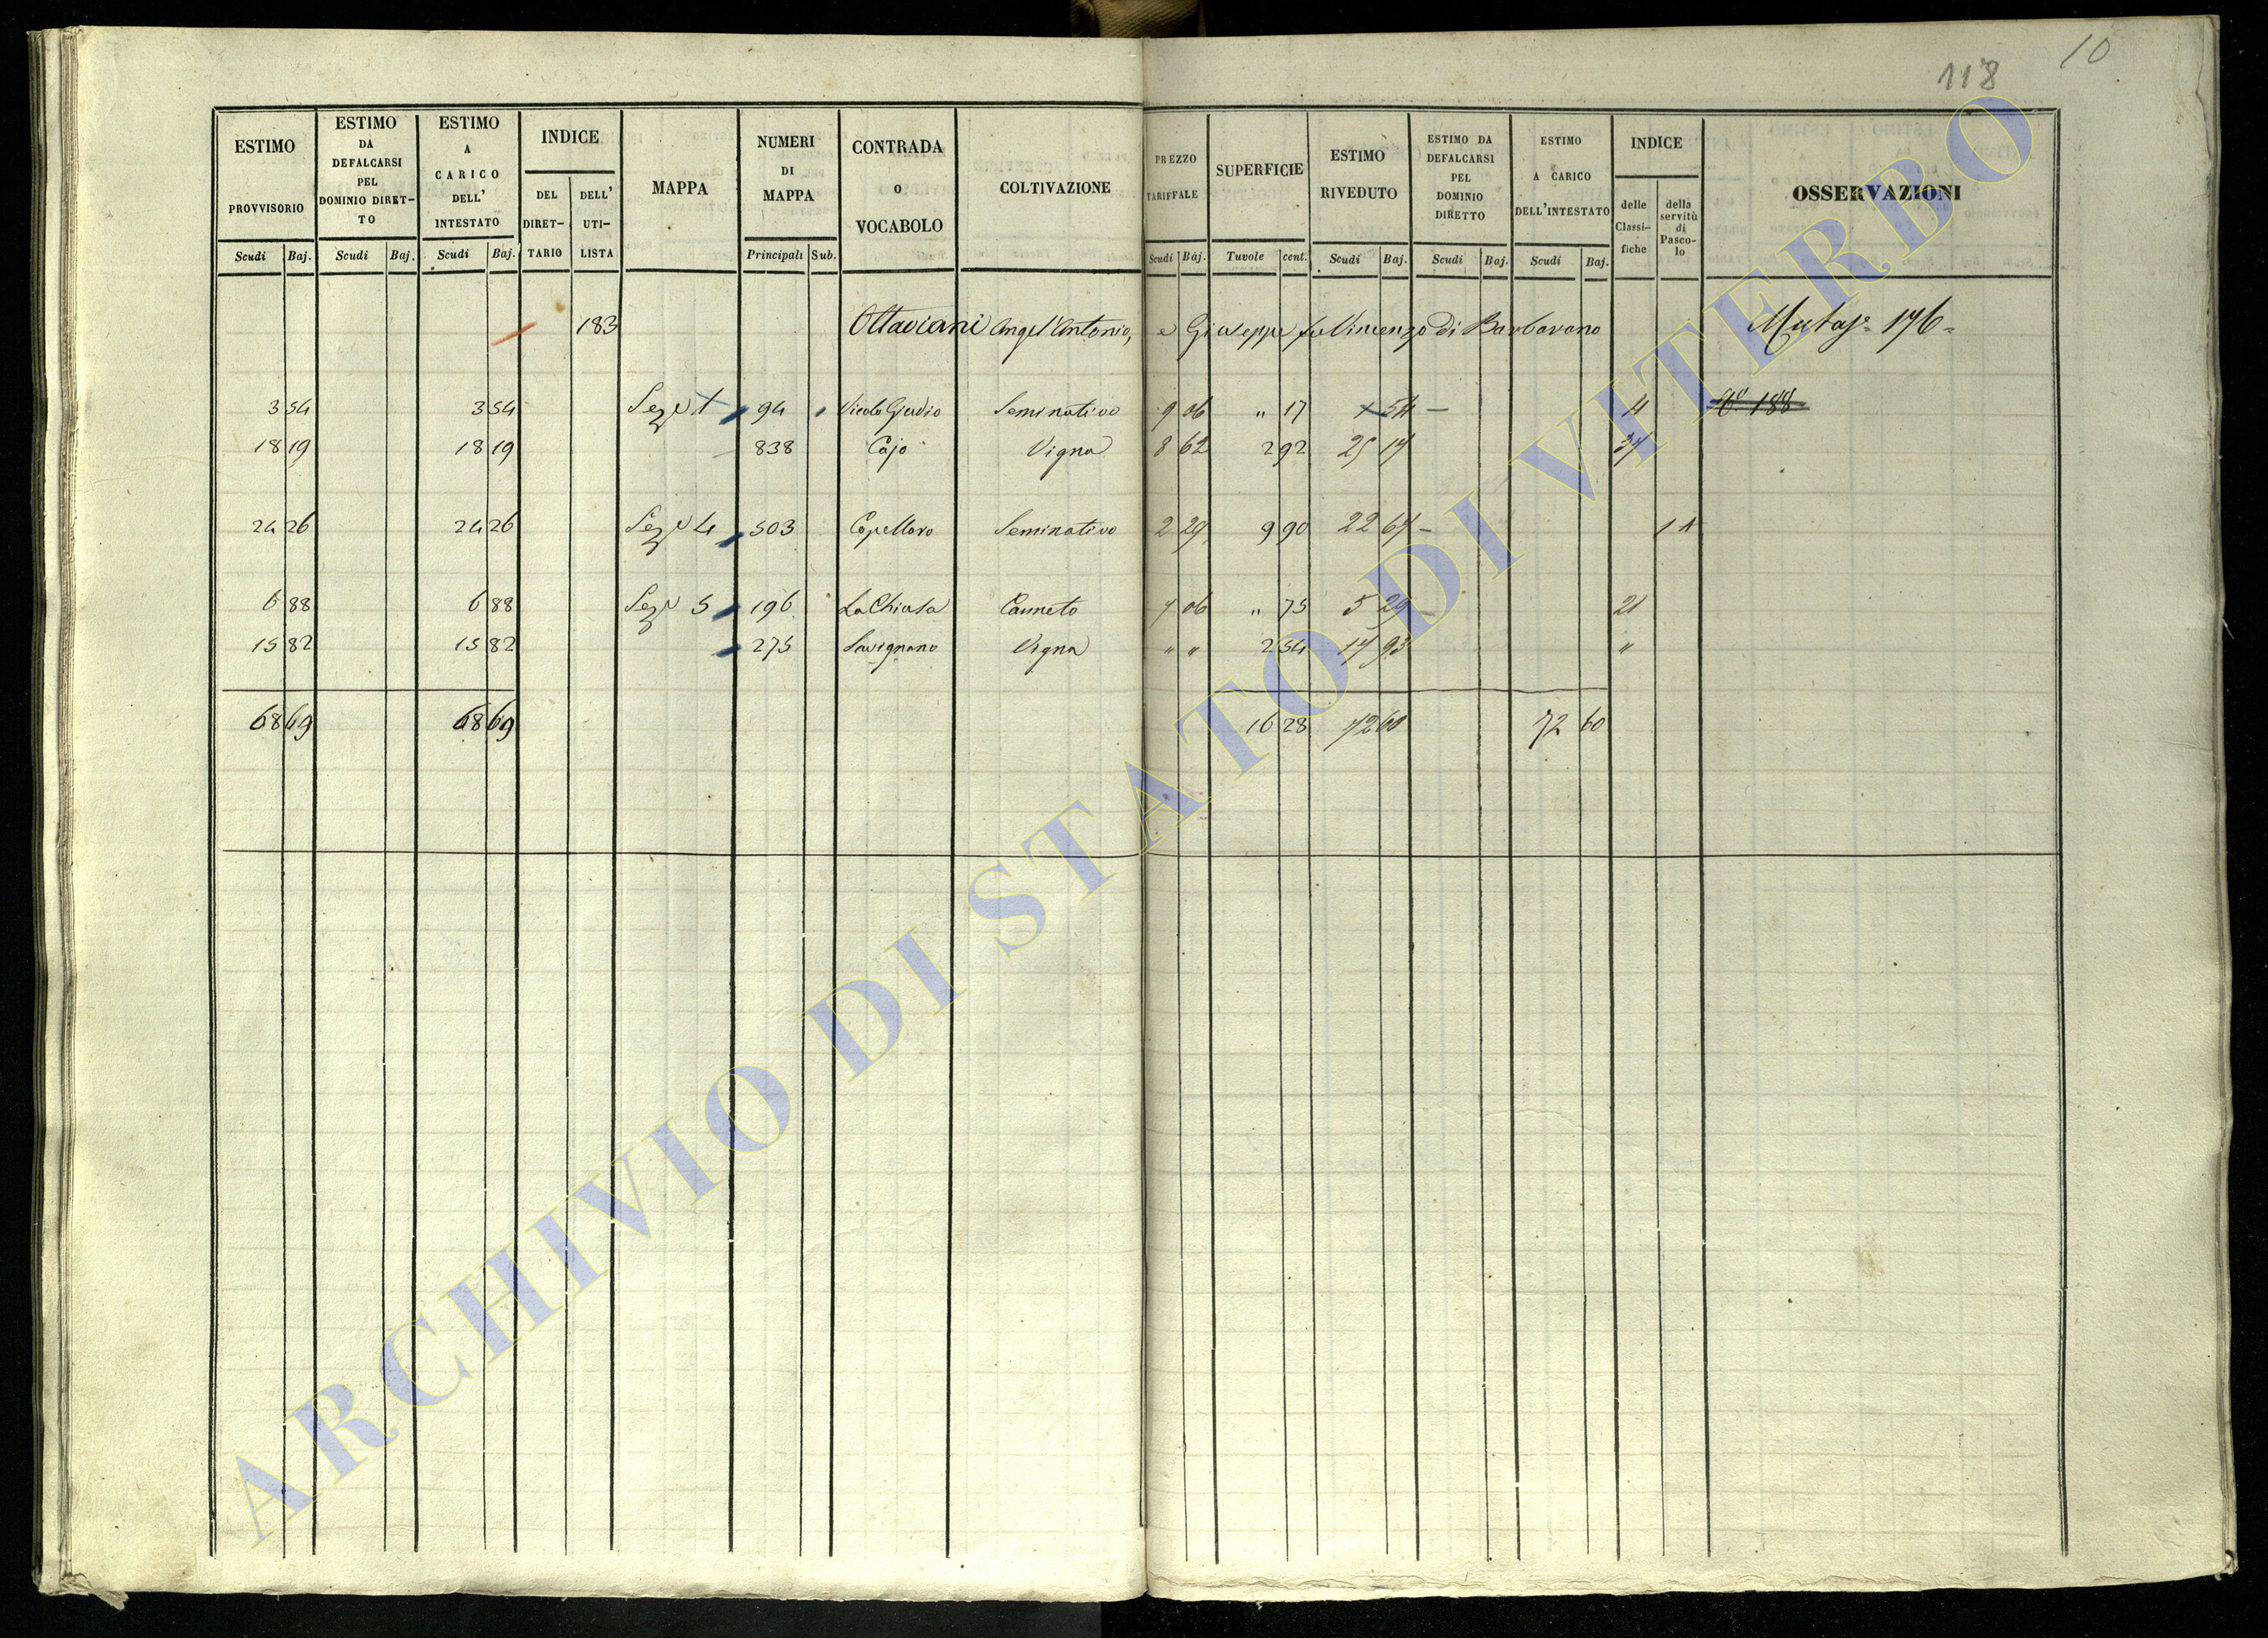 10
118
ESTIMO PROVVISORIO
ESTIMO DA DEFALCARSI PEL DOMINIO DIRETTO
ESTIMO A CARICO DELL' INTESTATO
INDICE
DEL DIRETTARIO
DELL' UTILISTA
MAPPA
NUMERI DI MAPPA
CONTRADA O VOCABOLO
COLTIVAZIONE
PREZZO TARIFFALE
SUPERFICIE
ESTIMO RIVEDUTO
ESTIMO DA DEFALCARSI PEL DOMINIO DIRETTO
ESTIMO A CARICO DELL'INTESTATO
INDICE
delle Classifiche
della servitù di Pascolo
OSSERVAZIONI
Scudi Baj. Scudi Baj. Scudi Baj. Principali Sub. Scudi Baj. Tavole cent. Scudi Baj. Scudi Baj. Scudi Baj.
183 Ottaviani Angel'Antonio, e Giuseppe fu Vincenzo di Barbarano
3 54 3 54 Sez. 1 94 Vicolo Giudio Seminativo 9 06 " 17 1 54 —
18 19 18 19 838 Cajo Vigna 8 62 2 92 25 17
24 26 24 26 Sez. 4 503 Capellaro Seminativo 2 29 9 90 22 67 —
6 88 6 88 Sez. 5 196 La Chiusa Canneto 7 06 " 75 5 29 — 21
15 82 15 82 275 Savignano Vigna " " 2 54 17 93 "
68 69 68 69 16 28 72 60 72 60
ARCHIVIO DI STATO DI VITERBO